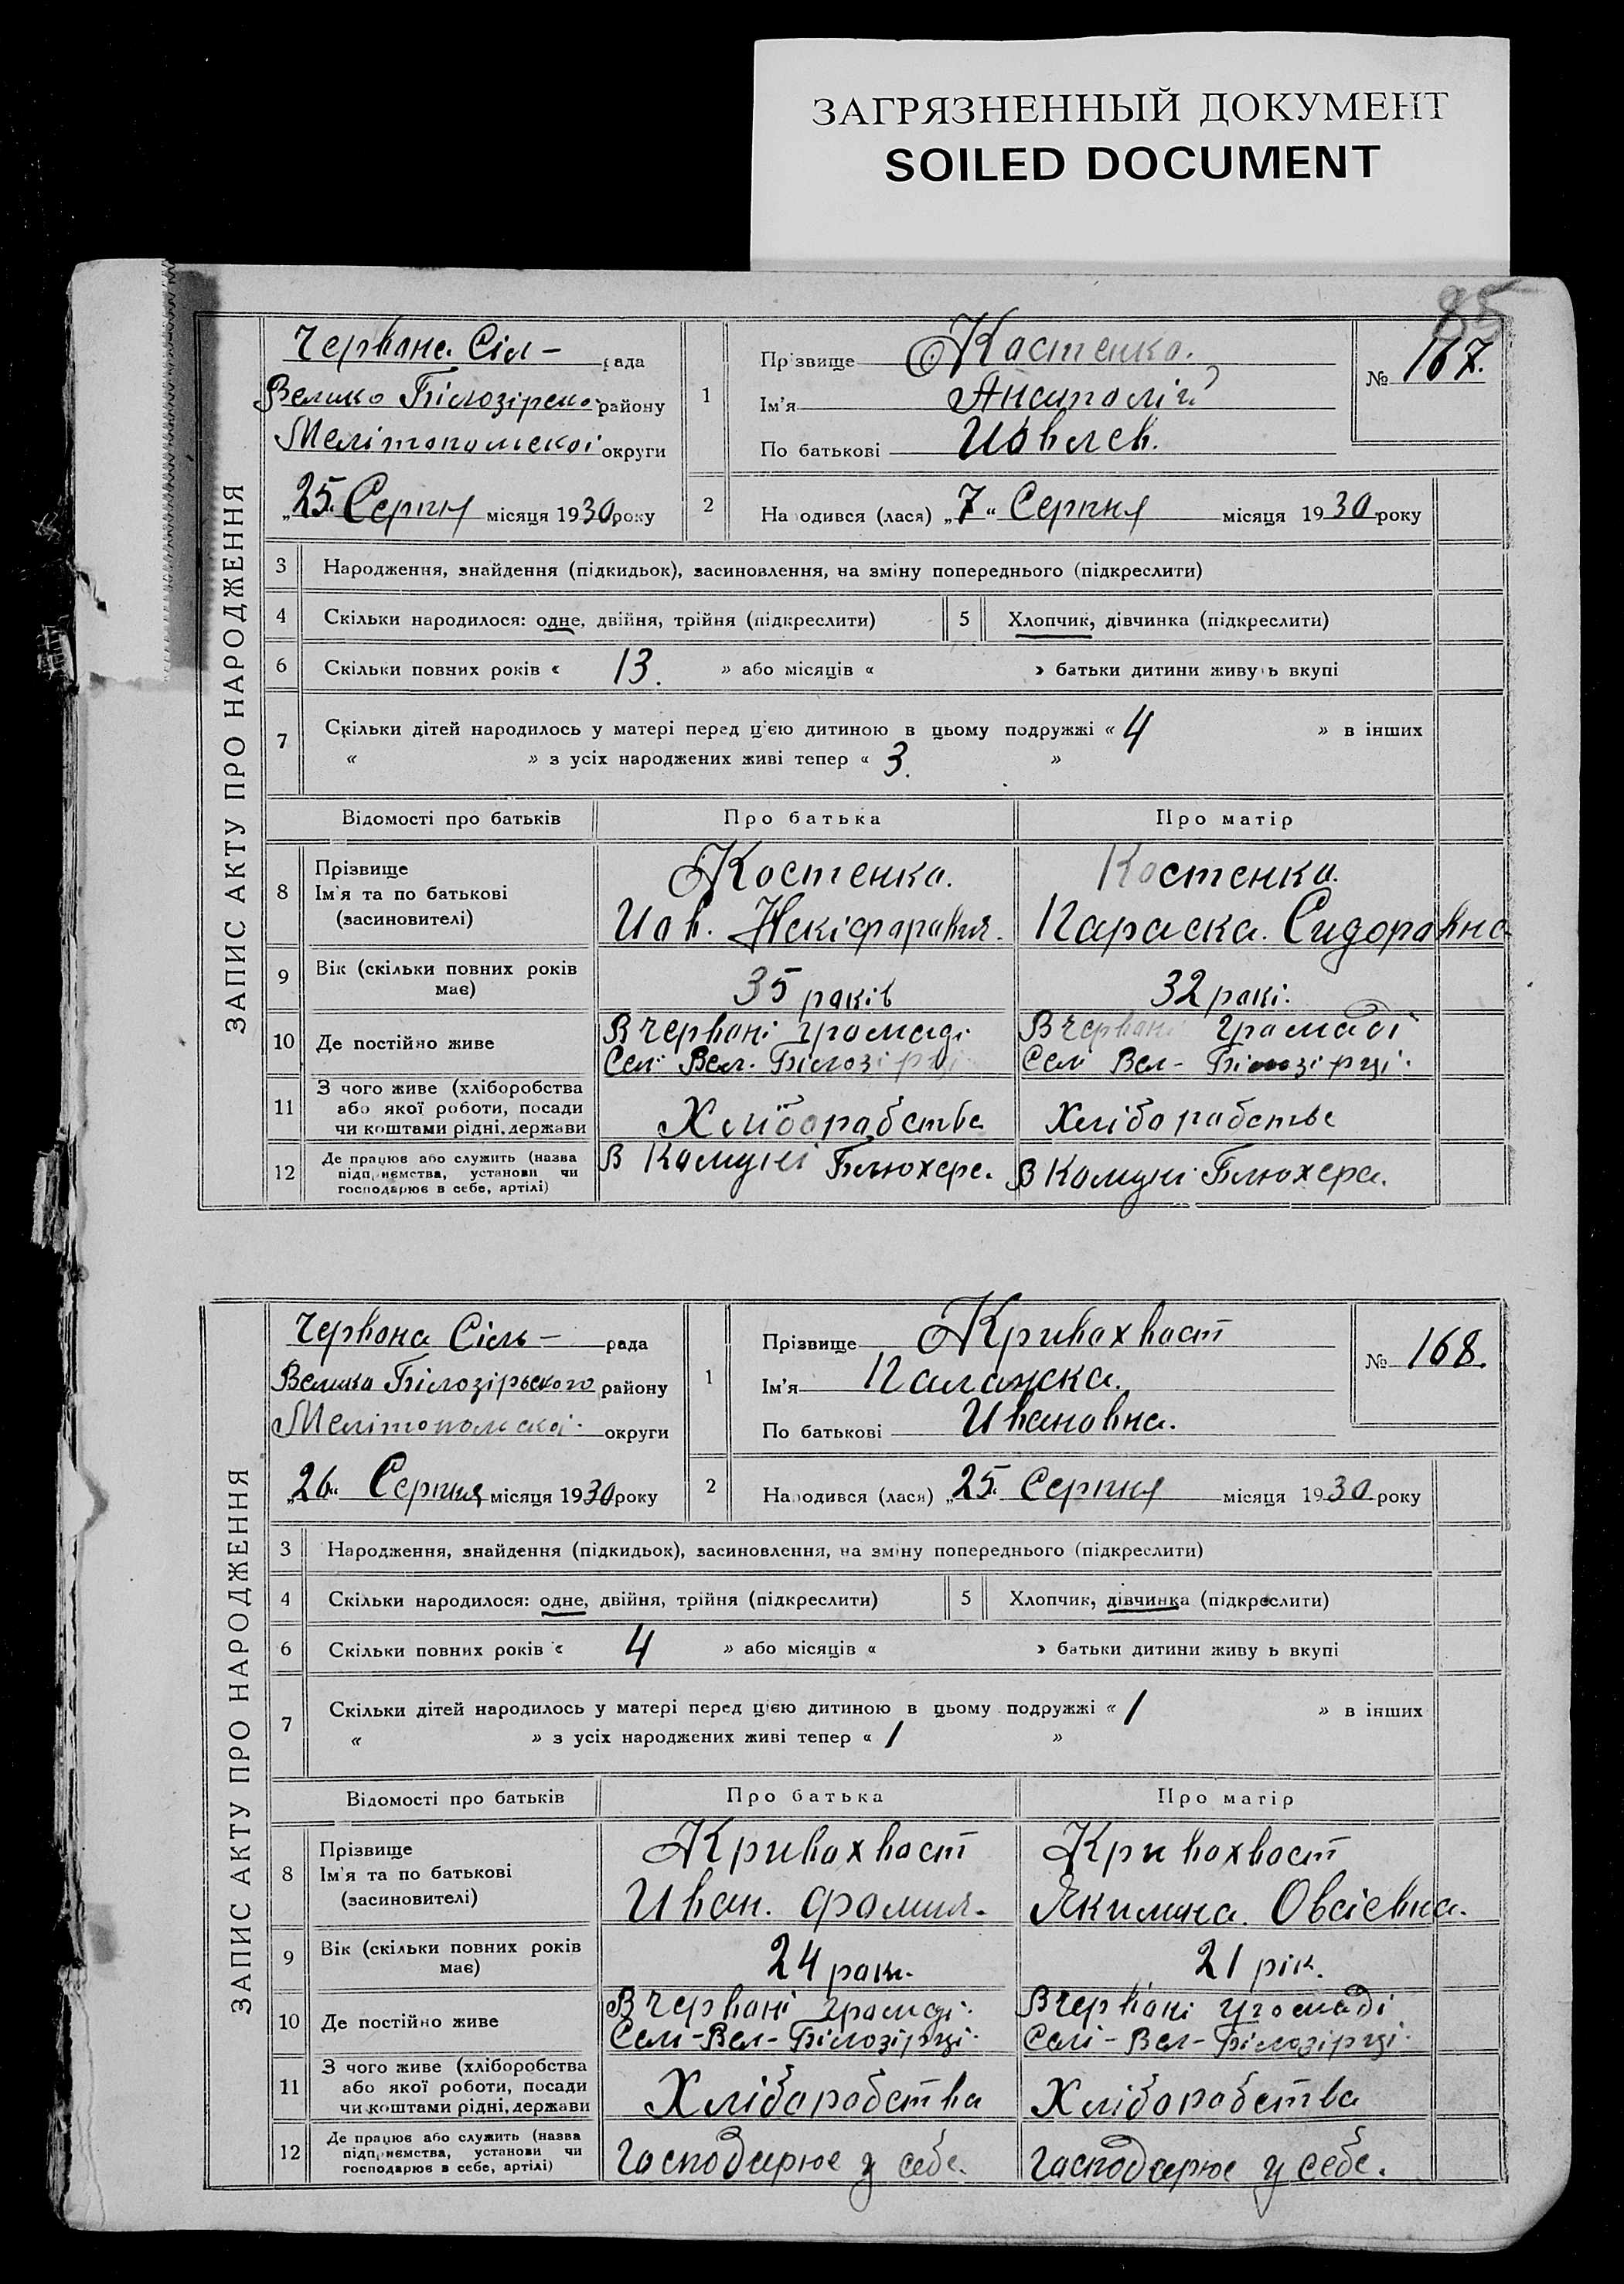 ЗАГРЯЗНЕННЫЙ ДОКУМЕНТ
SOILED DOCUMENT
85
ЗАПИС АКТУ ПРО НАРОДЖЕННЯ
Червона Сіл- рада
Велико Білозірско району
Мелітопольскої округи
„25“ Серпня місяця 1930 року
1 Прізвище Костенко.
Ім'я Анатолій
По батькові Иовлев.
№ 167.
2 Народився (лася) „7“ Серпня місяця 1930 року
3 Народження, знайдення (підкидьок), засиновлення, на зміну попереднього (підкреслити)
4 Скільки народилося: одне, двійня, трійня (підкреслити) 5 Хлопчик, дівчинка (підкреслити)
6 Скільки повних років « 13. » або місяців « » батьки дитини живуть вкупі
7 Скільки дітей народилось у матері перед цією дитиною в цьому подружжі « 4 » в інших
« » з усіх народжених живі тепер « 3. »
Відомості про батьків Про батька Про матір
8 Прізвище
Ім'я та по батькові
(засиновителі)
Костенко.
Иов. Некіфорович.
Костенко.
Параска. Сидоровно
9 Вік (скільки повних років
має)
35 років
32 рокі.
10 Де постійно живе
В червоні громаді
Селі Вел. Білозірці
В червоні громаді
Селі Вел- Білозірці.
11 З чого живе (хліборобства
або якої роботи, посади
чи коштами рідні, держави
Хліборобства
Хліборобства
12 Де працює або служить (назва
підприємства, установи чи
господарює в себе, артілі)
В Комуні Блюхера.
В Комуні Блюхера.
ЗАПИС АКТУ ПРО НАРОДЖЕННЯ
Червона Сіль- рада
Велико Білозірьского району
Мелітопольскої округи
„26“ Серпня місяця 1930 року
1 Прізвище Кривохвост
Ім'я Палажка.
По батькові Ивановна.
№ 168.
2 Народився (лася) „25“ Серпня місяця 1930 року
3 Народження, знайдення (підкидьок), засиновлення, на зміну попереднього (підкреслити)
4 Скільки народилося: одне, двійня, трійня (підкреслити) 5 Хлопчик, дівчинка (підкреслити)
6 Скільки повних років « 4 » або місяців « » батьки дитини живуть вкупі
7 Скільки дітей народилось у матері перед цією дитиною в цьому подружжі « 1 » в інших
« » з усіх народжених живі тепер « 1 »
Відомості про батьків Про батька Про матір
8 Прізвище
Ім'я та по батькові
(засиновителі)
Кривохвост
Иван. Фомич.
Кривохвост
Якимина. Овсіевна.
9 Вік (скільки повних років
має)
24 роки.
21 рік.
10 Де постійно живе
В червоні громаді.
Селі-Вел-Білозірці.
В червоні громаді
Селі-Вел-Білозірці.
11 З чого живе (хліборобства
або якої роботи, посади
чи коштами рідні, держави
Хліборобства
Хліборобства
12 Де працює або служить (назва
підприємства, установи чи
господарює в себе, артілі)
Господарює у себе.
Господарює у себе.